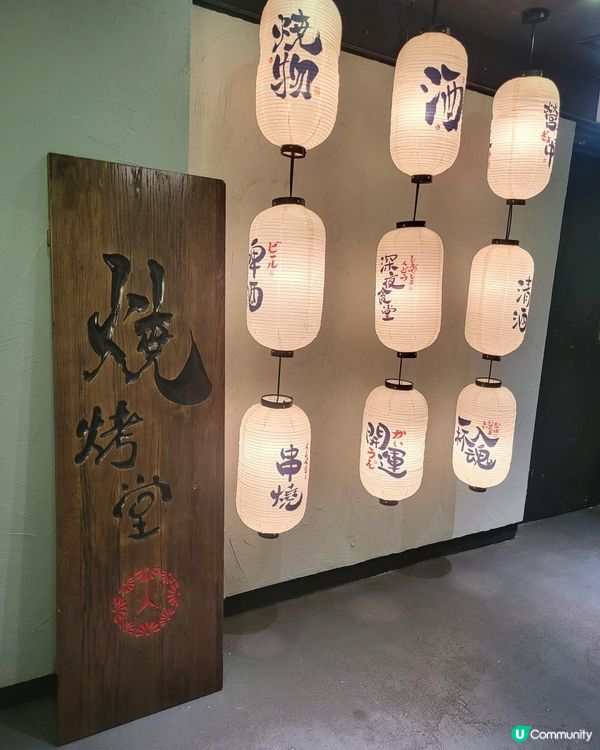 燒
烤
堂
焼物
酒
営
中
ビール
啤酒
深夜食堂
清酒
串燒
開運
かい
うん
一杯
入魂
U Community